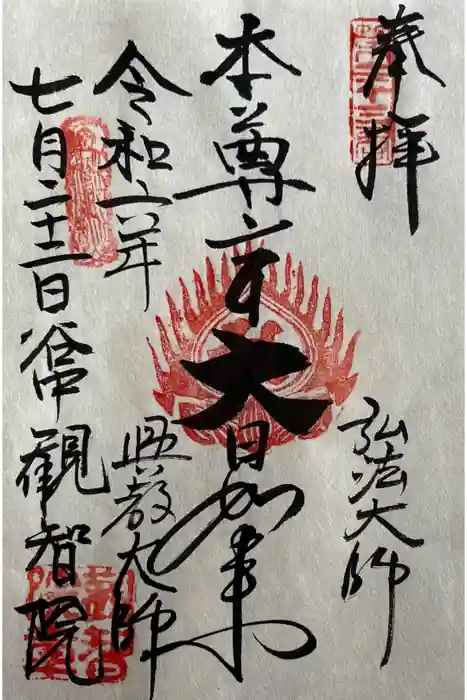 奉拝
弘法大師
本尊大日如来
興教大師
令和六年
七月二十二日谷中観智院